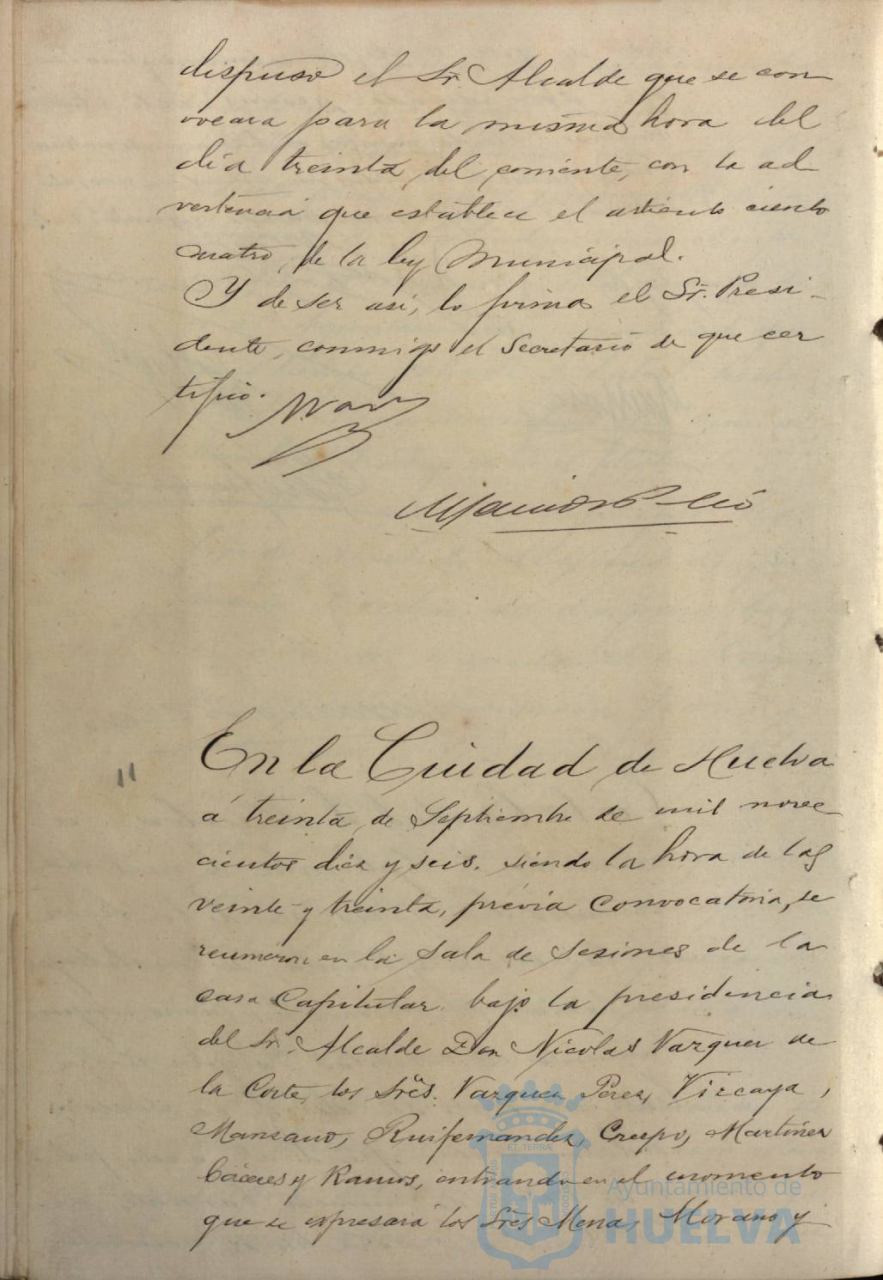 dispuso el Sr. Alcalde que se con
vocara para la misma hora del
día treinta del corriente, con la ad
vertencia que establece el artículo ciento
cuatro de la ley Municipal.
Y de ser así, lo firma el Sr. Presi-
dente, conmigo el Secretario de que cer
tifico.
11
En la Ciudad de Huelva
á treinta de Septiembre de mil nove
cientos diez y seis, siendo la hora de las
veinte y treinta, prévia convocatoria, se
reunieron en la Sala de Sesiones de la
casa Capitular bajo la presidencia
del Sr. Alcalde Don Nicolas Vazquez de
la Corte, los Sres. Vazquez Perez, Vizcaya,
Manzano, Ruifernandez, Crespo, Martinez
Cáceres y Ramos, entrando en el momento
que se expresará los Sres Mora, Morano y
Ayuntamiento de
HUELVA